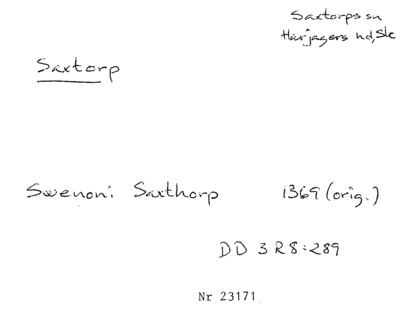 Saxtorps sn
Harjagers hd, Sk
Saxtorp
Swenoni Saxthorp 1369 (orig.)
DD 3 R 8:289
Nr 23171